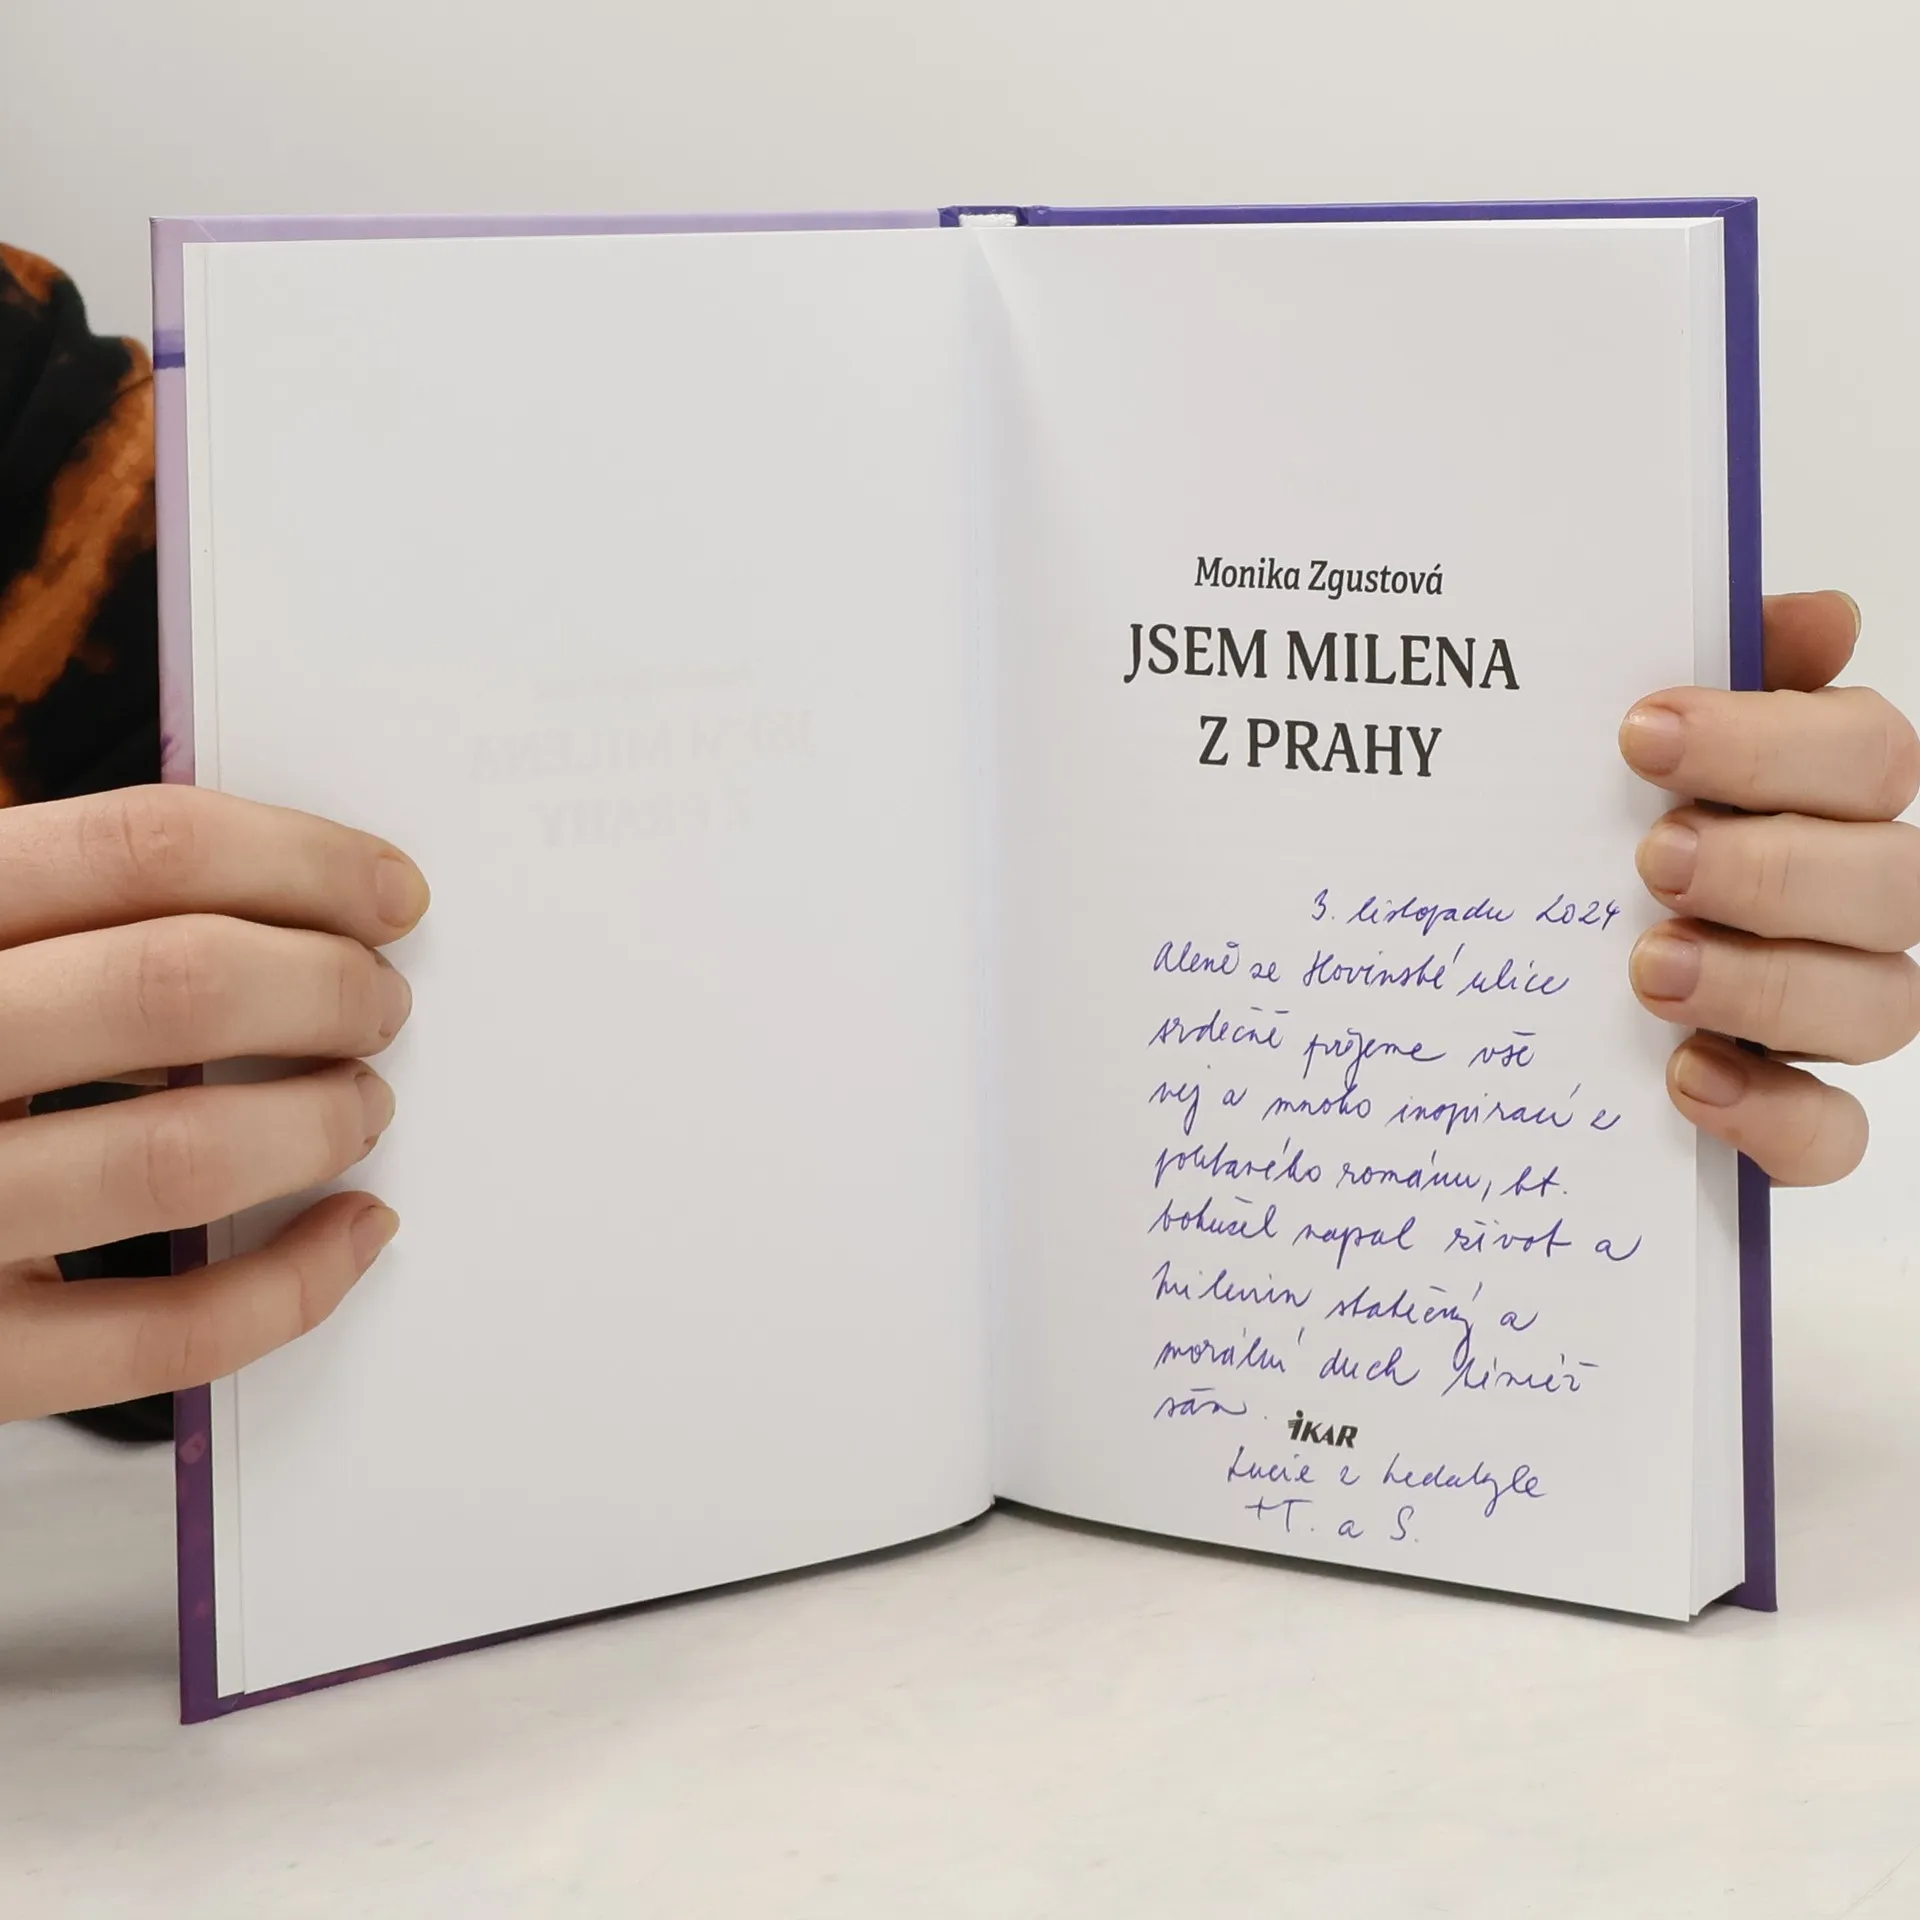 Monika Zgustová
JSEM MILENA
Z PRAHY
3. listopadu 2024
Aleně ze Slovinské ulice
srdečně přejeme vše
nej a mnoho inspirací z
poutavého románu, kt.
bohužel napsal život a
Milenin statečný a
morální duch téměř
sám.
iKAR
Lucie z
+T. a S.